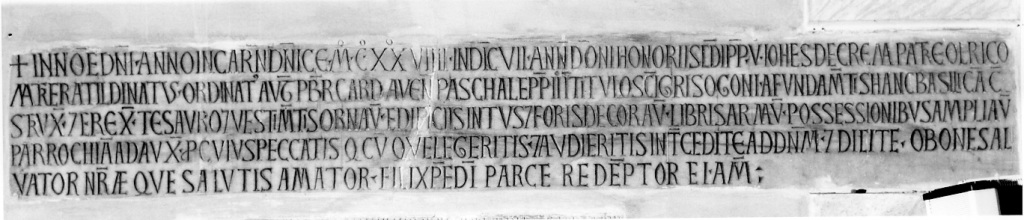 + INNOEDNI·ANNOINCARNDNICE·M·CXXVIIII·INDICVII·ANNDONIHONORIISEDIPPV·IOHESDECREMAPATREOLRICO
MARERATILDINATVS·ORDINAT AVG PBRCARD AVEN PASCHALEPPIITITVLOSCIGRISOGONI·AFVNDAMTISHANCBASILICAC
STRVX·7EREX·TESAVRO7VESTIMTISORNAV·EDIFICIISINTVS7FORISDECORAV·LIBRISARMAV·POSSESSIONIBVSAMPLIAV
PARROCHIAADAVX·PCVIVSPECCATIS QCVQVELEGERITIS·7AVDIERITISINTCEDITEADDNM·7DICITE·OBONESAL
VATOR NRÆ QVE SALVTIS AMATOR·FILIXPEDI PARCE REDEPTOR EI·AM;